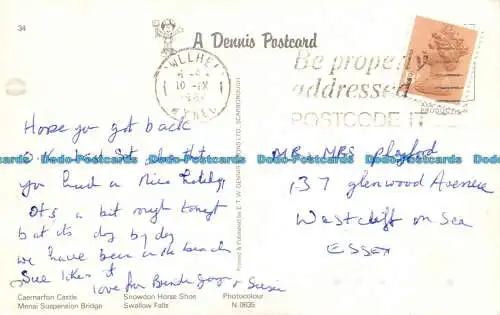 34
A Dennis Postcard
PWLLHELI
Be properly
addressed
POSTCODE IT
Hope you got back
O.K. last Sat
you had a nice holiday
its a bit rough tonight
but its day by day
we have been on the beach
Sue likes it
love from
+ Susie
Printed & Published by E. T. W. DENNIS & SONS LTD., SCARBOROUGH
MR + MRS Playford
137 glenwood Avenue
Westcliff on Sea
ESSEX
Caernarfon Castle
Snowdon Horse Shoe
Photocolour
Menai Suspension Bridge
Swallow Falls
N.0635
Dodo-Postcards Dodo-Postcards Dodo-Postcards Dodo-Postcards Dodo-Postcards